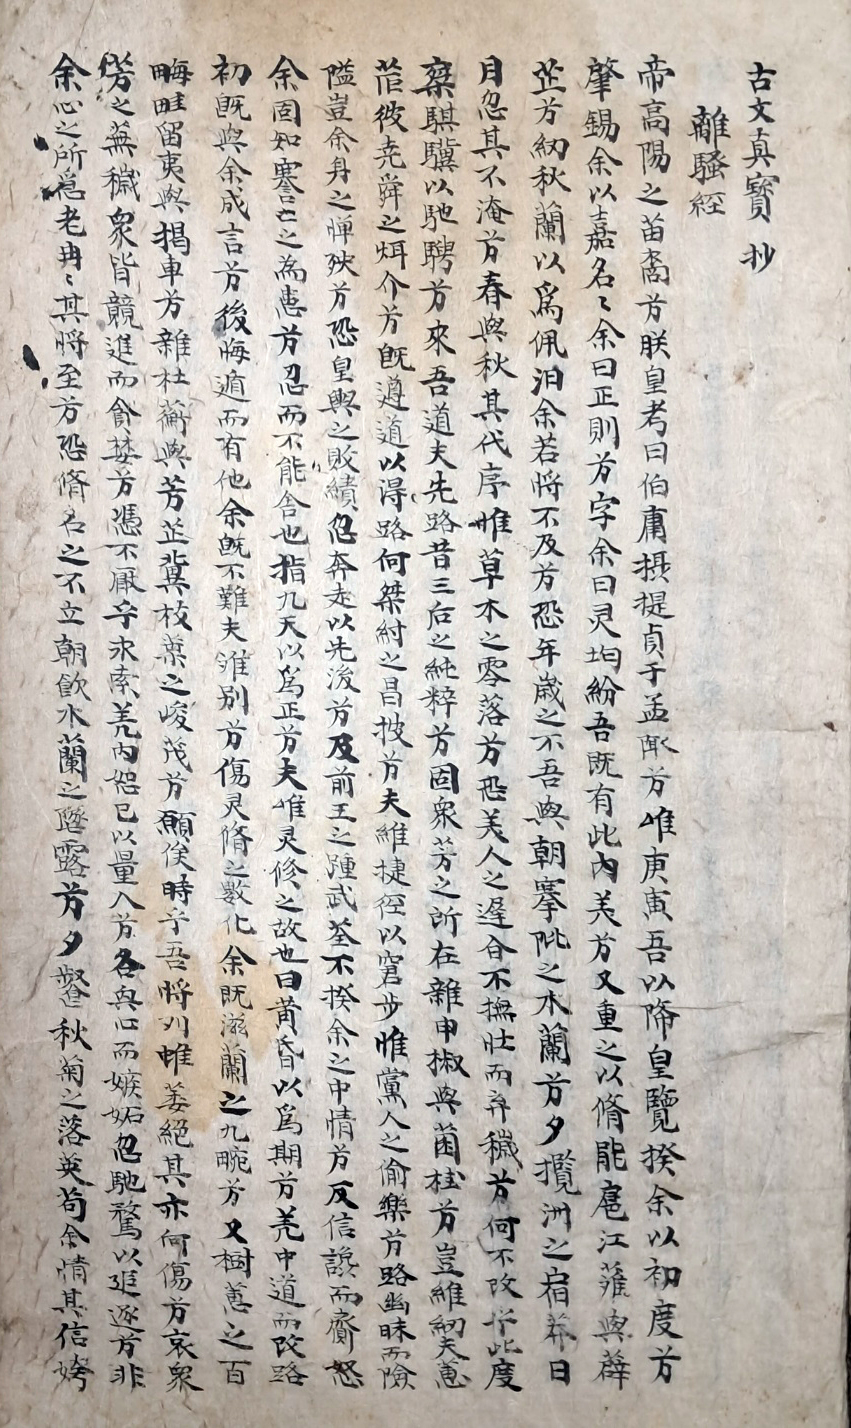 古文真寶 抄
離騷經
帝高陽之苗裔兮朕皇考曰伯庸摄提貞于孟陬兮唯庚寅吾以降皇覽揆余以初度兮
肇錫余以嘉名〻余曰正則兮字余曰灵均紛吾既有此內美兮又重之以脩能扈江蘺與薜
芷兮紉秋蘭以爲佩汨余若將不及兮恐年歲之不吾與朝搴阰之木蘭兮夕攬洲之宿莽日
月忽其不淹兮春與秋其代序惟草木之零落兮恐美人之遲合不撫壯而弃穢兮何不改乎此度
椉騏驥以馳騁兮來吾道夫先路昔三后之純粹兮固衆芳之所在雜申椒與菌桂兮豈維紉夫蕙
茝彼尭舜之烱介兮既遵道以得路何桀紂之昌披兮夫維捷徑以窘步惟黨人之偷樂兮路幽昧而險
隘豈余身之憚殃兮恐皇輿之敗績忽奔走以先後兮及前王之踵武荃不揆余之中情兮反信讒而齎怒
余固知謇〻之為患兮忍而不能舍也指九天以爲正兮夫唯灵修之故也曰黄昏以爲期兮羌中道而改路
初既與余成言兮後悔遁而有他余既不難夫離別兮傷灵脩之數化余既滋蘭之九畹兮又樹蕙之百
畮畦留夷與揭車兮雜杜蘅與芳芷冀枝葉之峻茂兮願俟時乎吾將刈雖萎絕其亦何傷兮哀衆
芳之蕪穢衆皆競進而貪婪兮憑不厭乎求索羌內恕己以量人兮各與心而嫉妬忽馳騖以追逐兮非
余心之所急老冉〻其將至兮恐脩名之不立朝飮木蘭之墜露兮夕飱秋菊之落英苟余情其信姱